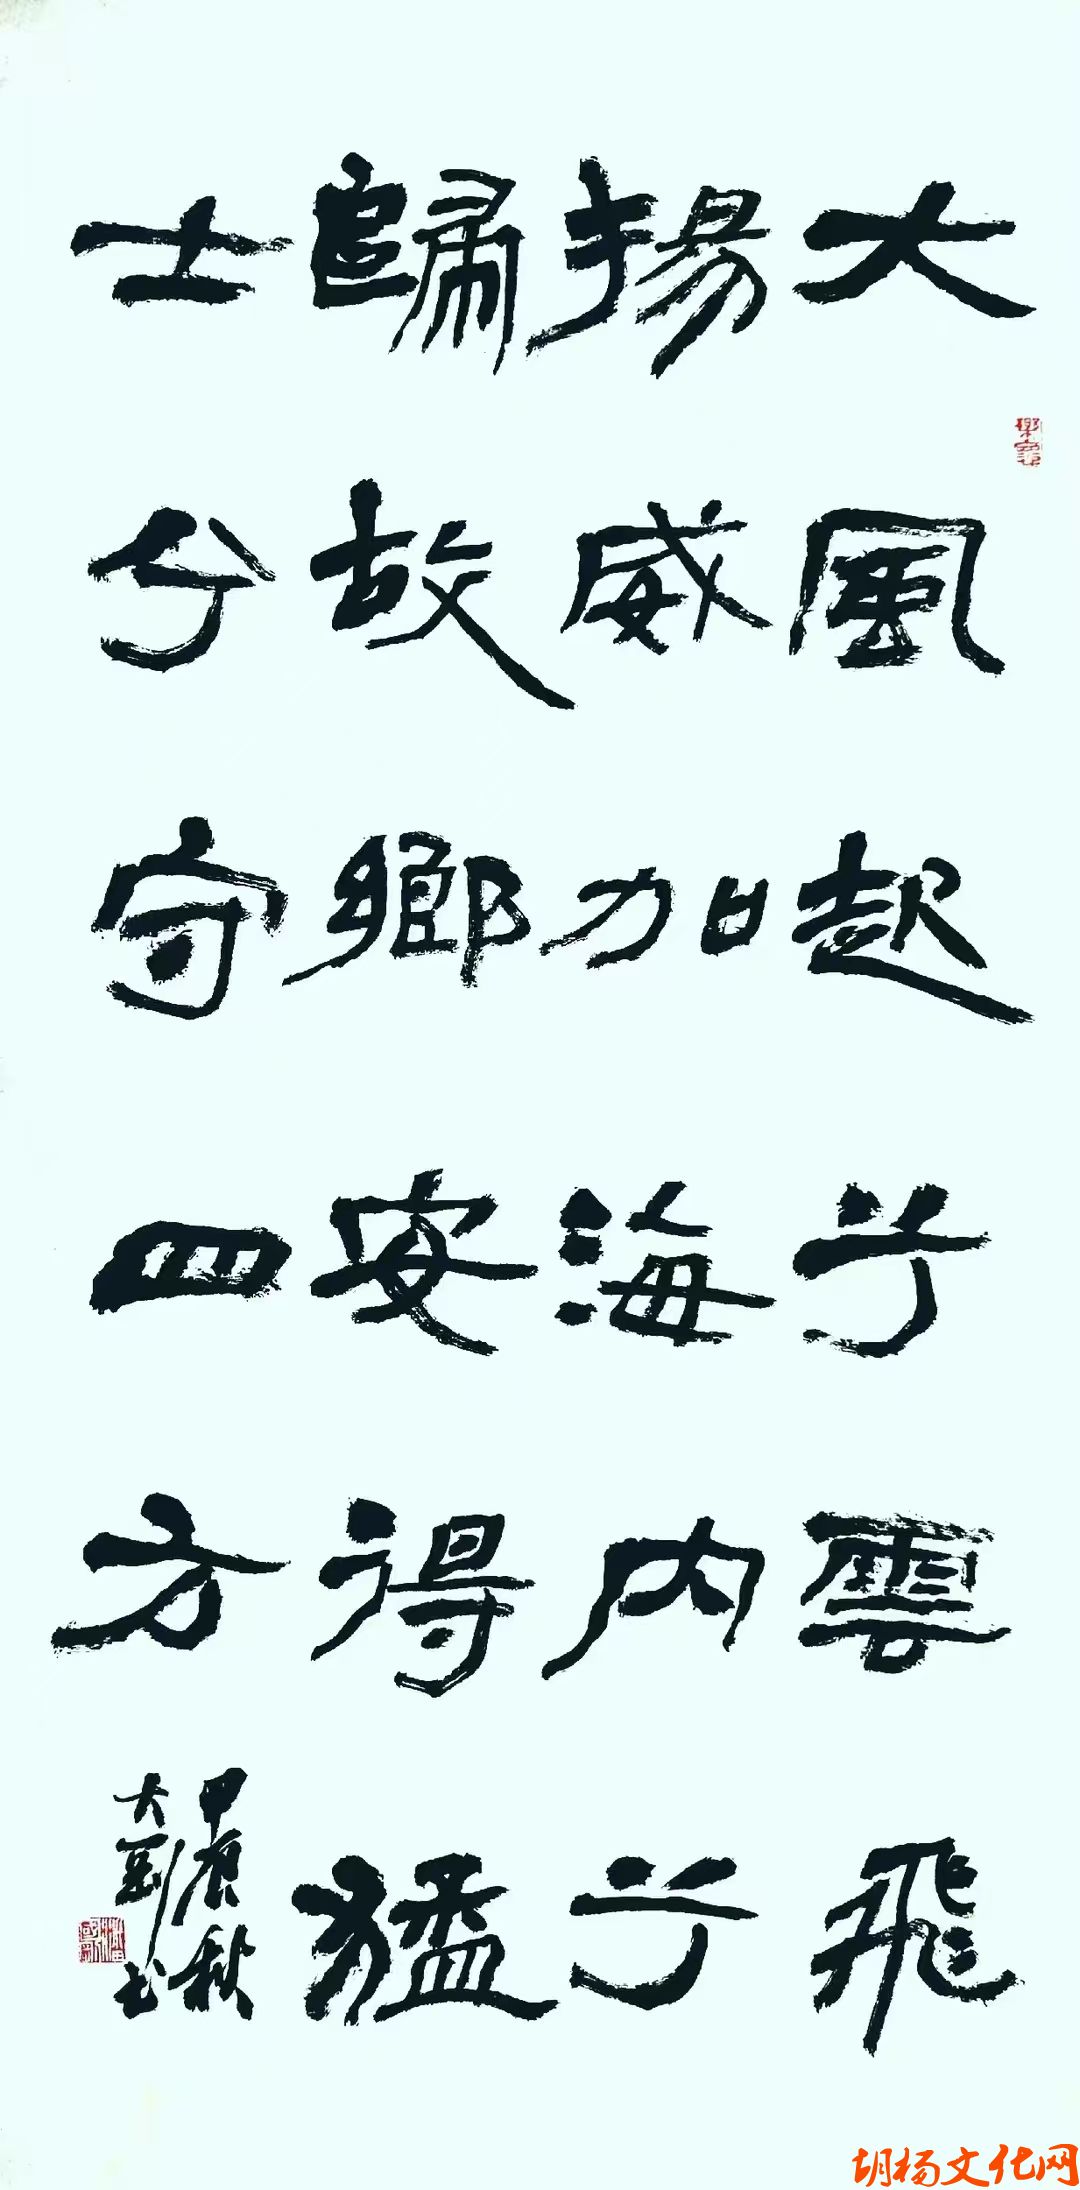 大風起兮雲飛
揚威加海内兮
歸故鄉安得猛
士兮守四方
甲辰秋
大劉书
胡杨文化网